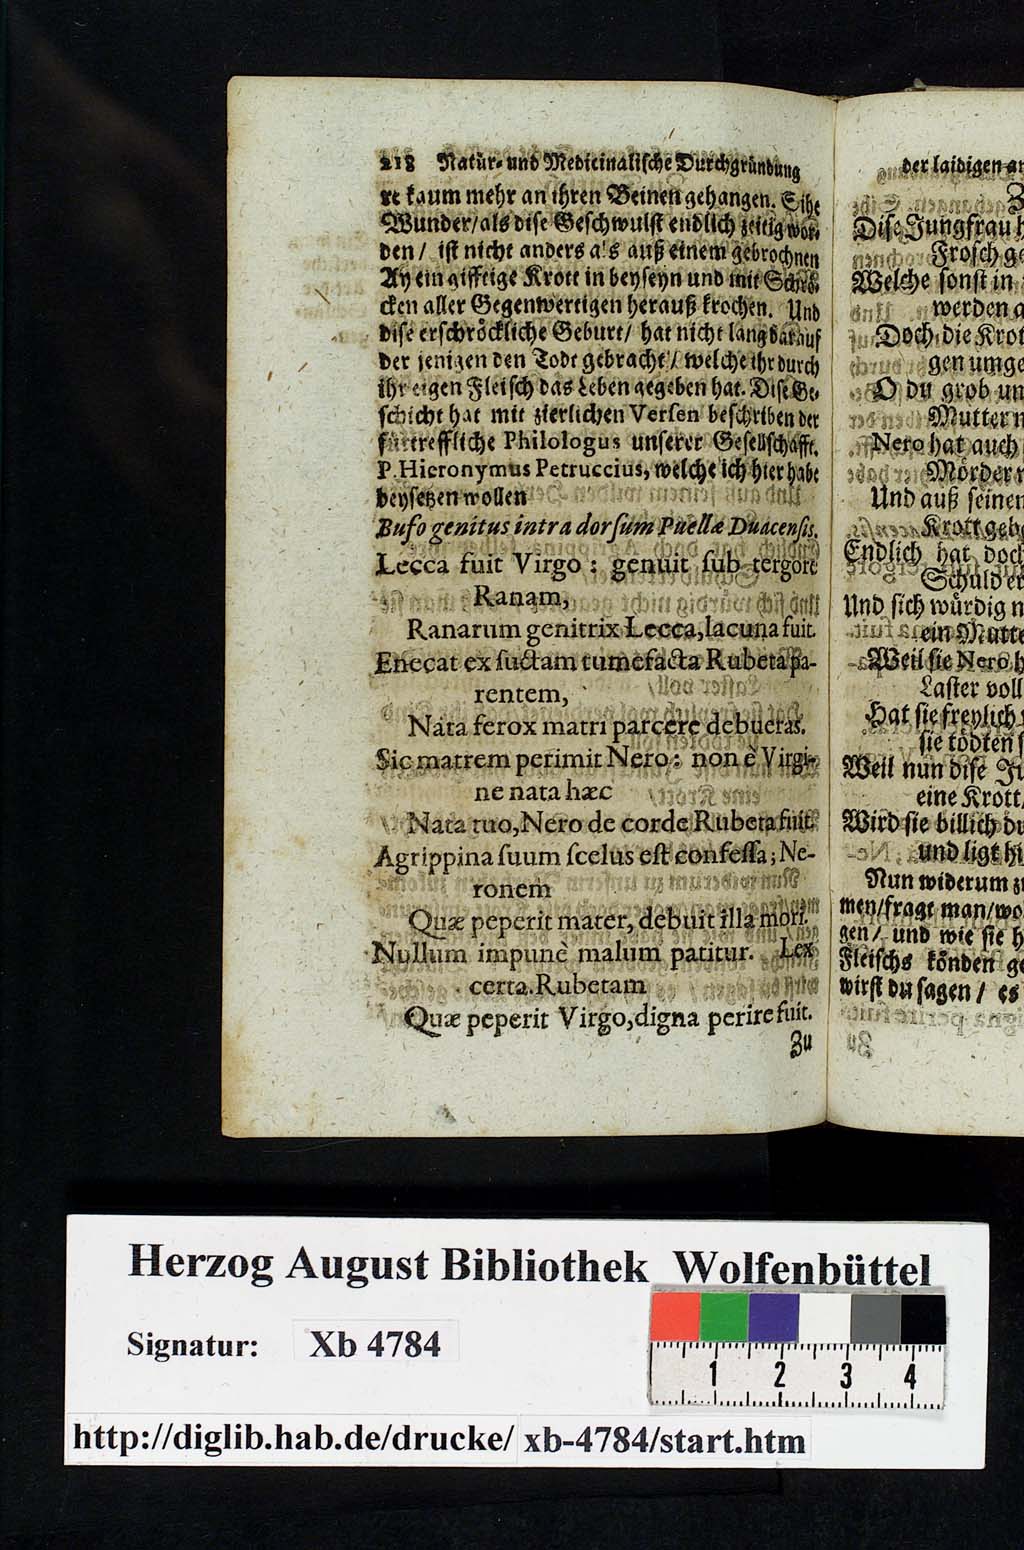 218 Natür- und Medicinalische Durchgründung
re kaum mehr an ihren Beinen gehangen. Sihe
Wunder/ als dise Geschwulst endlich zeitig wor-
den/ ist nicht anders als auß einem gebrochnen
Ay ein gifftige Krott in beyseyn und mit Schrö-
cken aller Gegenwertigen herauß krochen. Und
dise erschröckliche Geburt/ hat nicht lang darauf
der jenigen den Todt gebracht/ welche ihr durch
ihr eigen Fleisch das Leben gegeben hat. Dise Ge-
schicht hat mit zierlichen Versen beschriben der
fürtreffliche Philologus unserer Gesellschafft.
P. Hieronymus Petruccius, welche ich hier habe
beysetzen wollen
Bufo genitus intra dorsum Puellæ Duacensis.
Lecca fuit Virgo: genuit sub tergore
Ranam,
Ranarum genitrix Lecca, lacuna fuit.
Enecat ex suctam tumefacta Rubeta pa-
rentem,
Nata ferox matri parcere debueras.
Sic matrem perimit Nero: non è Virgi-
ne nata hæc
Nata tuo, Nero de corde Rubeta fuit.
Agrippina suum scelus est confessa; Ne-
ronem
Quæ peperit mater, debuit illa mori.
Nullum impunè malum patitur. Lex
certa. Rubetam
Quæ peperit Virgo, digna perire fuit.
Zu
der laidigen an
Z
Dise Jungfrau h
Frosch ge
Welche sonst in
werden a
Doch die Krot
gen umge
O du grob un
Mutter n
Nero hat auch
Mörder n
Und auß seinen
Krott geb
Endlich hat doch
Schuld er
Und sich würdig n
ein Mutte
Weil sie Nero h
Laster voll
Hat sie freylich
sie tödten s
Weil nun dise Ju
eine Krott/
Wird sie billich du
und ligt hi
Nun widerum z
men/ fragt man/ wo
gen/ und wie sie h
Fleischs könden ge
wirst du sagen/ es
Herzog August Bibliothek Wolfenbüttel
Signatur: Xb 4784
1 2 3 4
http://diglib.hab.de/drucke/ xb-4784/start.htm